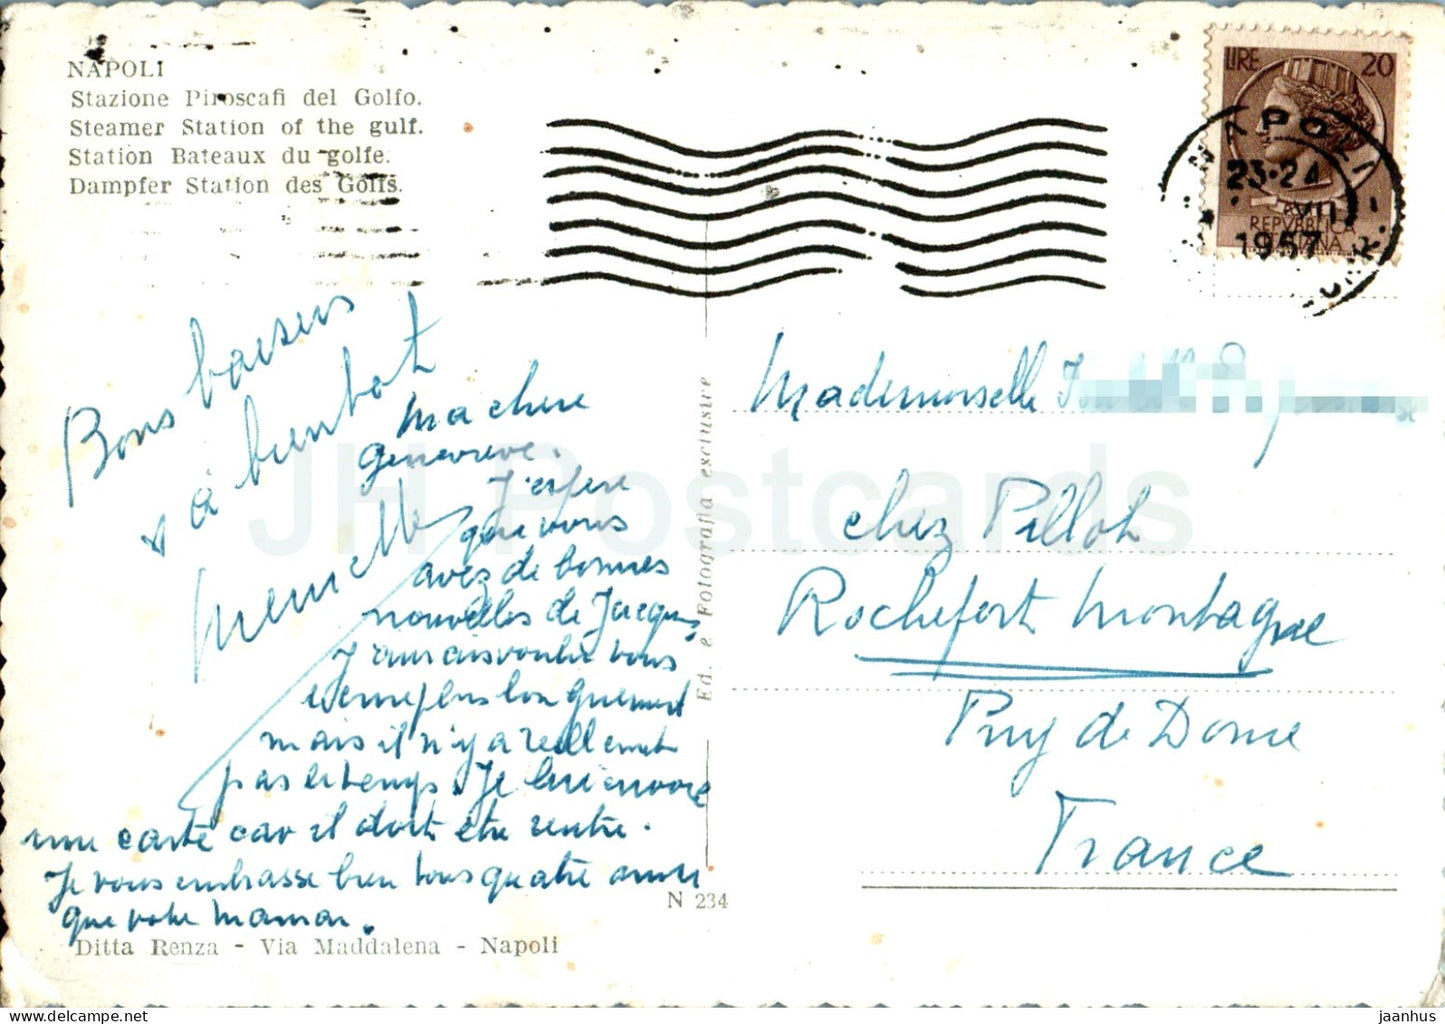 NAPOLI
Stazione Piroscafi del Golfo.
Steamer Station of the gulf.
Station Bateaux du golfe.
Dampfer Station des Golfs.
LIRE 20
NAPOLI
23-24
VII
1957
REPVBBLICA
ITALIANA
Bons baisers
à bientot
Ma chere
genevieve.
J'espere
que vous
avez de bonnes
nouvelles de Jacques,
J'aurais voulu vous
ecrire plus longuement
mais il n'y a reellement
pas le temps. Je lui envoie
une carte car il doit etre rentre.
Je vous embrasse bien tous quatre
que votre Maman.
Ed. e Fotografia esclusive
Mademoiselle
chez Pillot
Rochefort Montagne
Puy de Dome
France
N 234
Ditta Renza - Via Maddalena - Napoli
JH Postcards
jaanhus
delcampe.net